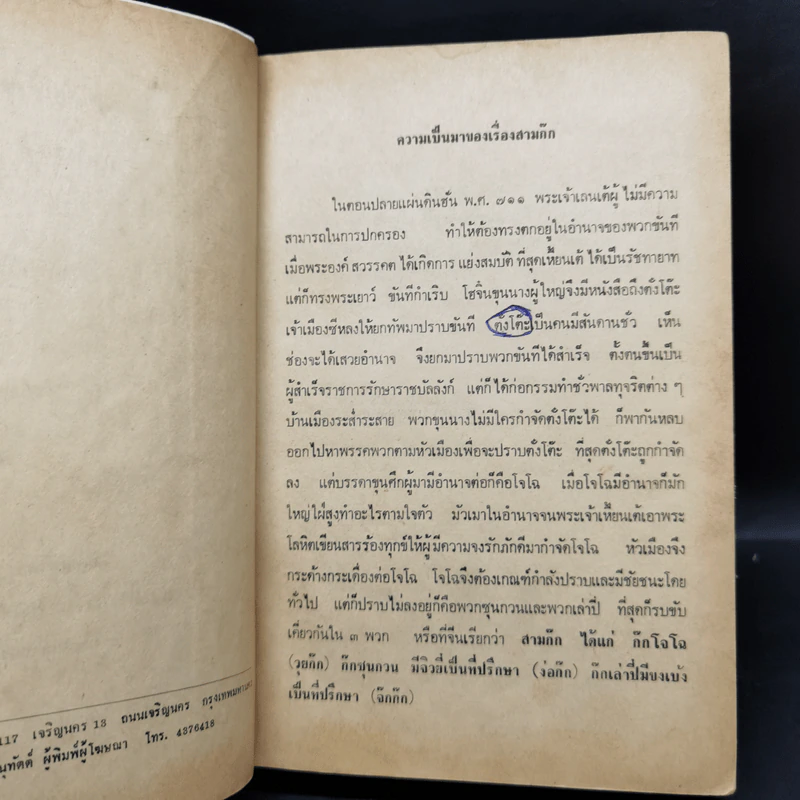 117 เจริญนคร 13 ถนนเจริญนคร กรุงเทพมหานคร
ผู้พิมพ์ผู้โฆษณา โทร. 4376418
ความเป็นมาของเรื่องสามก๊ก
ในตอนปลายแผ่นดินฮั่น พ.ศ. ๗๑๑ พระเจ้าเลนเต้ผู้ไม่มีความ
สามารถในการปกครอง ทำให้ต้องทรงตกอยู่ในอำนาจของพวกขันที
เมื่อพระองค์ สวรรคต ได้เกิดการ แย่งสมบัติ ที่สุดเหี้ยนเต้ ได้เป็นรัชทายาท
แต่ก็ทรงพระเยาว์ ขันทีกำเริบ โฮจิ๋นขุนนางผู้ใหญ่จึงมีหนังสือถึงตั๋งโต๊ะ
เจ้าเมืองซีหลงให้ยกทัพมาปราบขันที ตั๋งโต๊ะเป็นคนมีสันดานชั่ว เห็น
ช่องจะได้เสวยอำนาจ จึงยกมาปราบพวกขันทีได้สำเร็จ ตั้งตนขึ้นเป็น
ผู้สำเร็จราชการรักษาราชบัลลังก์ แต่ก็ได้ก่อกรรมทำชั่วพาลทุจริตต่าง ๆ
บ้านเมืองระส่ำระสาย พวกขุนนางไม่มีใครกำจัดตั๋งโต๊ะได้ ก็พากันหลบ
ออกไปหาพรรคพวกตามหัวเมืองเพื่อจะปราบตั๋งโต๊ะ ที่สุดตั๋งโต๊ะถูกกำจัด
ลง แต่บรรดาขุนศึกผู้มามีอำนาจต่อก็คือโจโฉ เมื่อโจโฉมีอำนาจก็มัก
ใหญ่ใฝ่สูงทำอะไรตามใจตัว มัวเมาในอำนาจจนพระเจ้าเหี้ยนเต้เอาพระ
โลหิตเขียนสารร้องทุกข์ให้ผู้มีความจงรักภักดีมากำจัดโจโฉ หัวเมืองจึง
กระด้างกระเดื่องต่อโจโฉ โจโฉจึงต้องเกณฑ์กำลังปราบและมีชัยชนะโดย
ทั่วไป แต่ก็ปราบไม่ลงอยู่ก็คือพวกซุนกวนและพวกเล่าปี่ ที่สุดก็รบขับ
เคี่ยวกันใน ๓ พวก หรือที่จีนเรียกว่า สามก๊ก ได้แก่ ก๊กโจโฉ
(วุยก๊ก) ก๊กซุนกวน มีจิวยี่เป็นที่ปรึกษา (ง่อก๊ก) ก๊กเล่าปี่มีขงเบ้ง
เป็นที่ปรึกษา (จ๊กก๊ก)